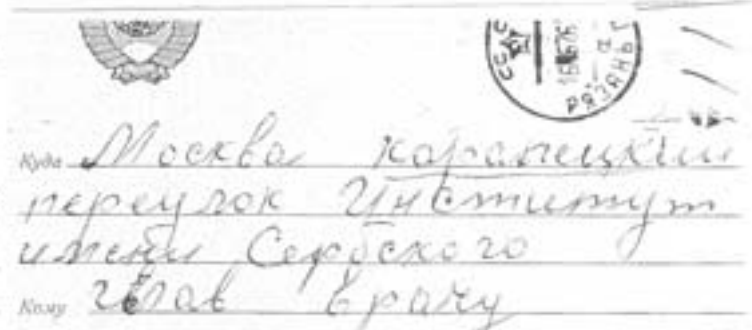 СССР
РЯЗАНЬ
Куда Москва карапецкий
переулок Институт
имени Сербского
Кому глав врачу